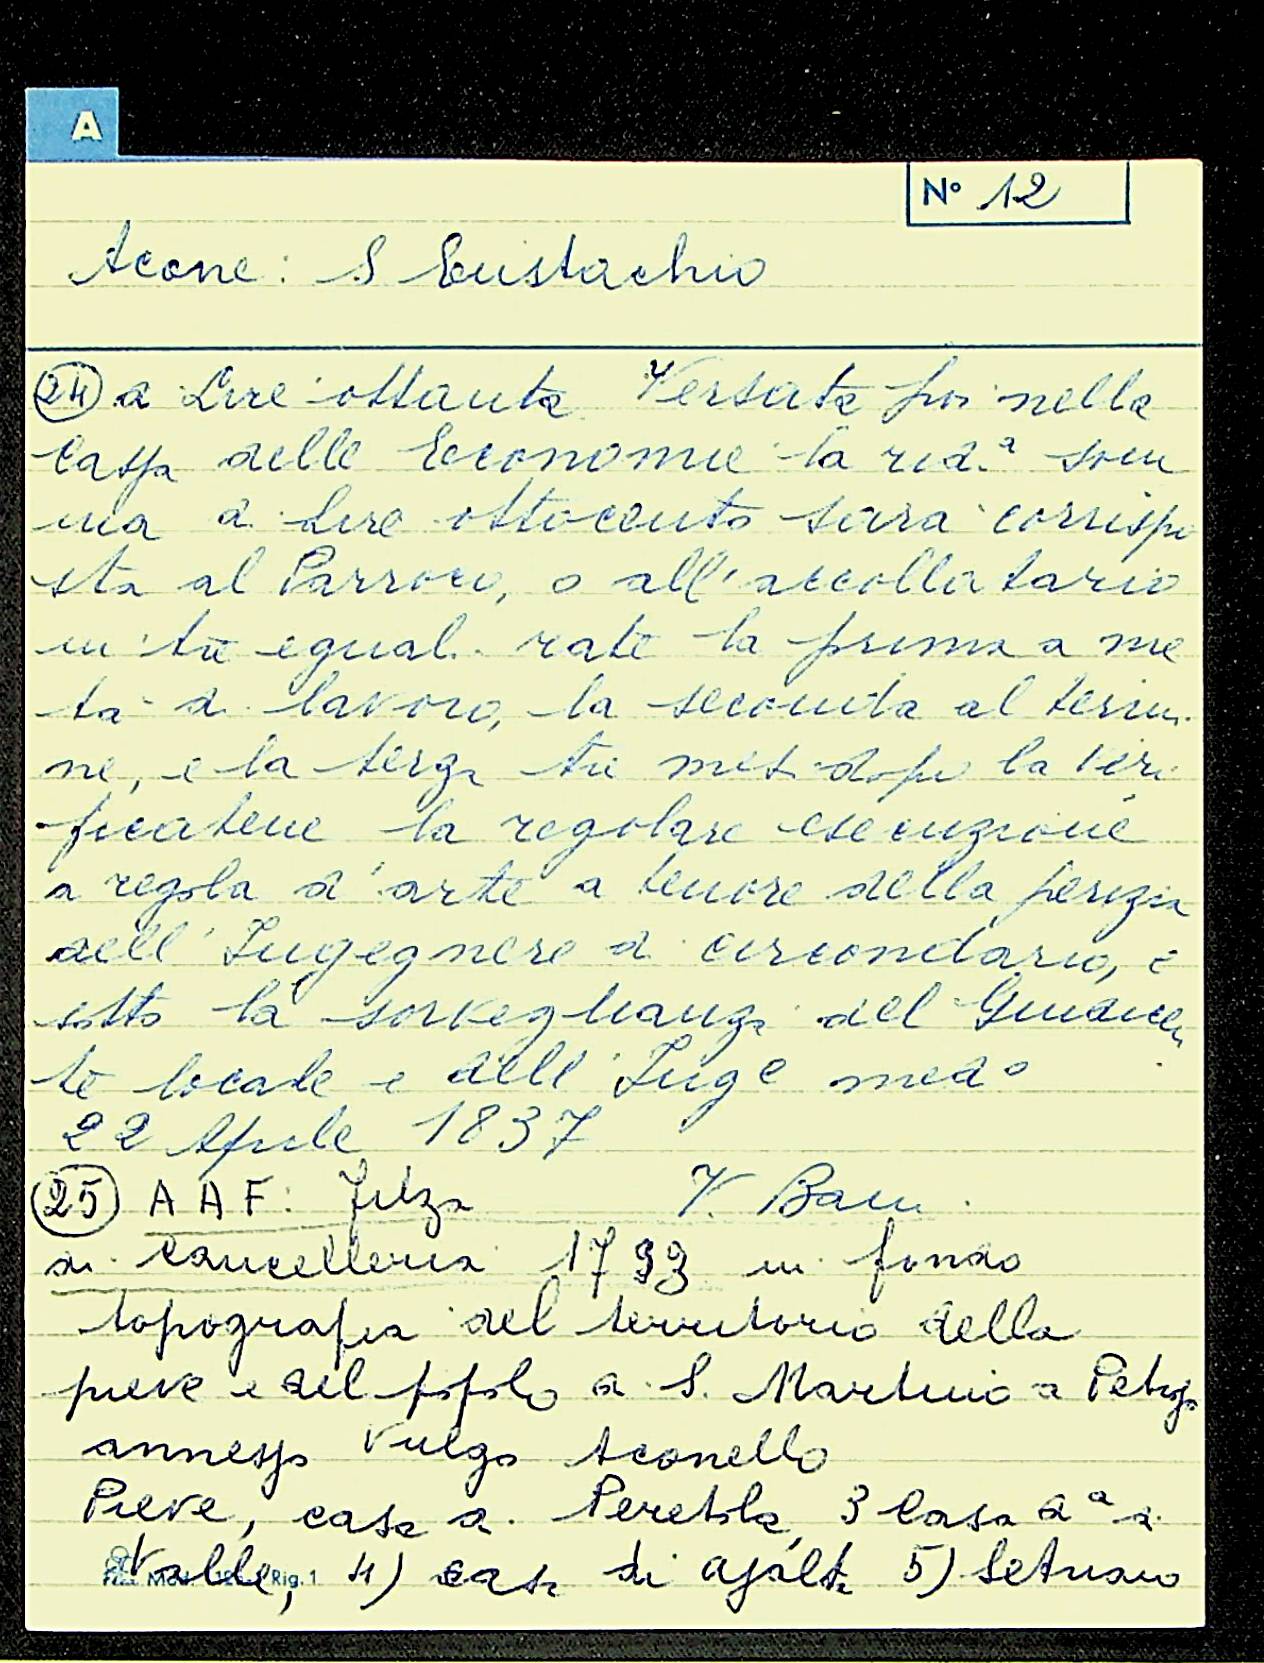 A
N° 12
Acone: S Eustachio
24 di Lire ottanta Versata poi nella
Cassa delle Economie la rid.ª som
ma di Lire ottocento sarà corrispo
sta al Parroco, o all'accollatario
in tre eguali rate la prima a me
tà di lavoro, la seconda al termi
ne, e la terza tre mesi dopo la veri
ficatene la regolare esecuzione
a regola d'arte a tenore della perizia
dell'Ingegnere di circondario, e
sotto la sorveglianza del Giusdicen
te locale e dell'Inge med°
22 Aprile 1837
25 AAF: Filza V. Bam
di Cancelleria 1793 in fondo
topografia del territorio della
pieve e del popolo di S. Martino a
annesso vulgo Aconello
Pieve, casa di Peretola, 3 Casa dª di
Valle, 4) casa di 5)
Rig. 1